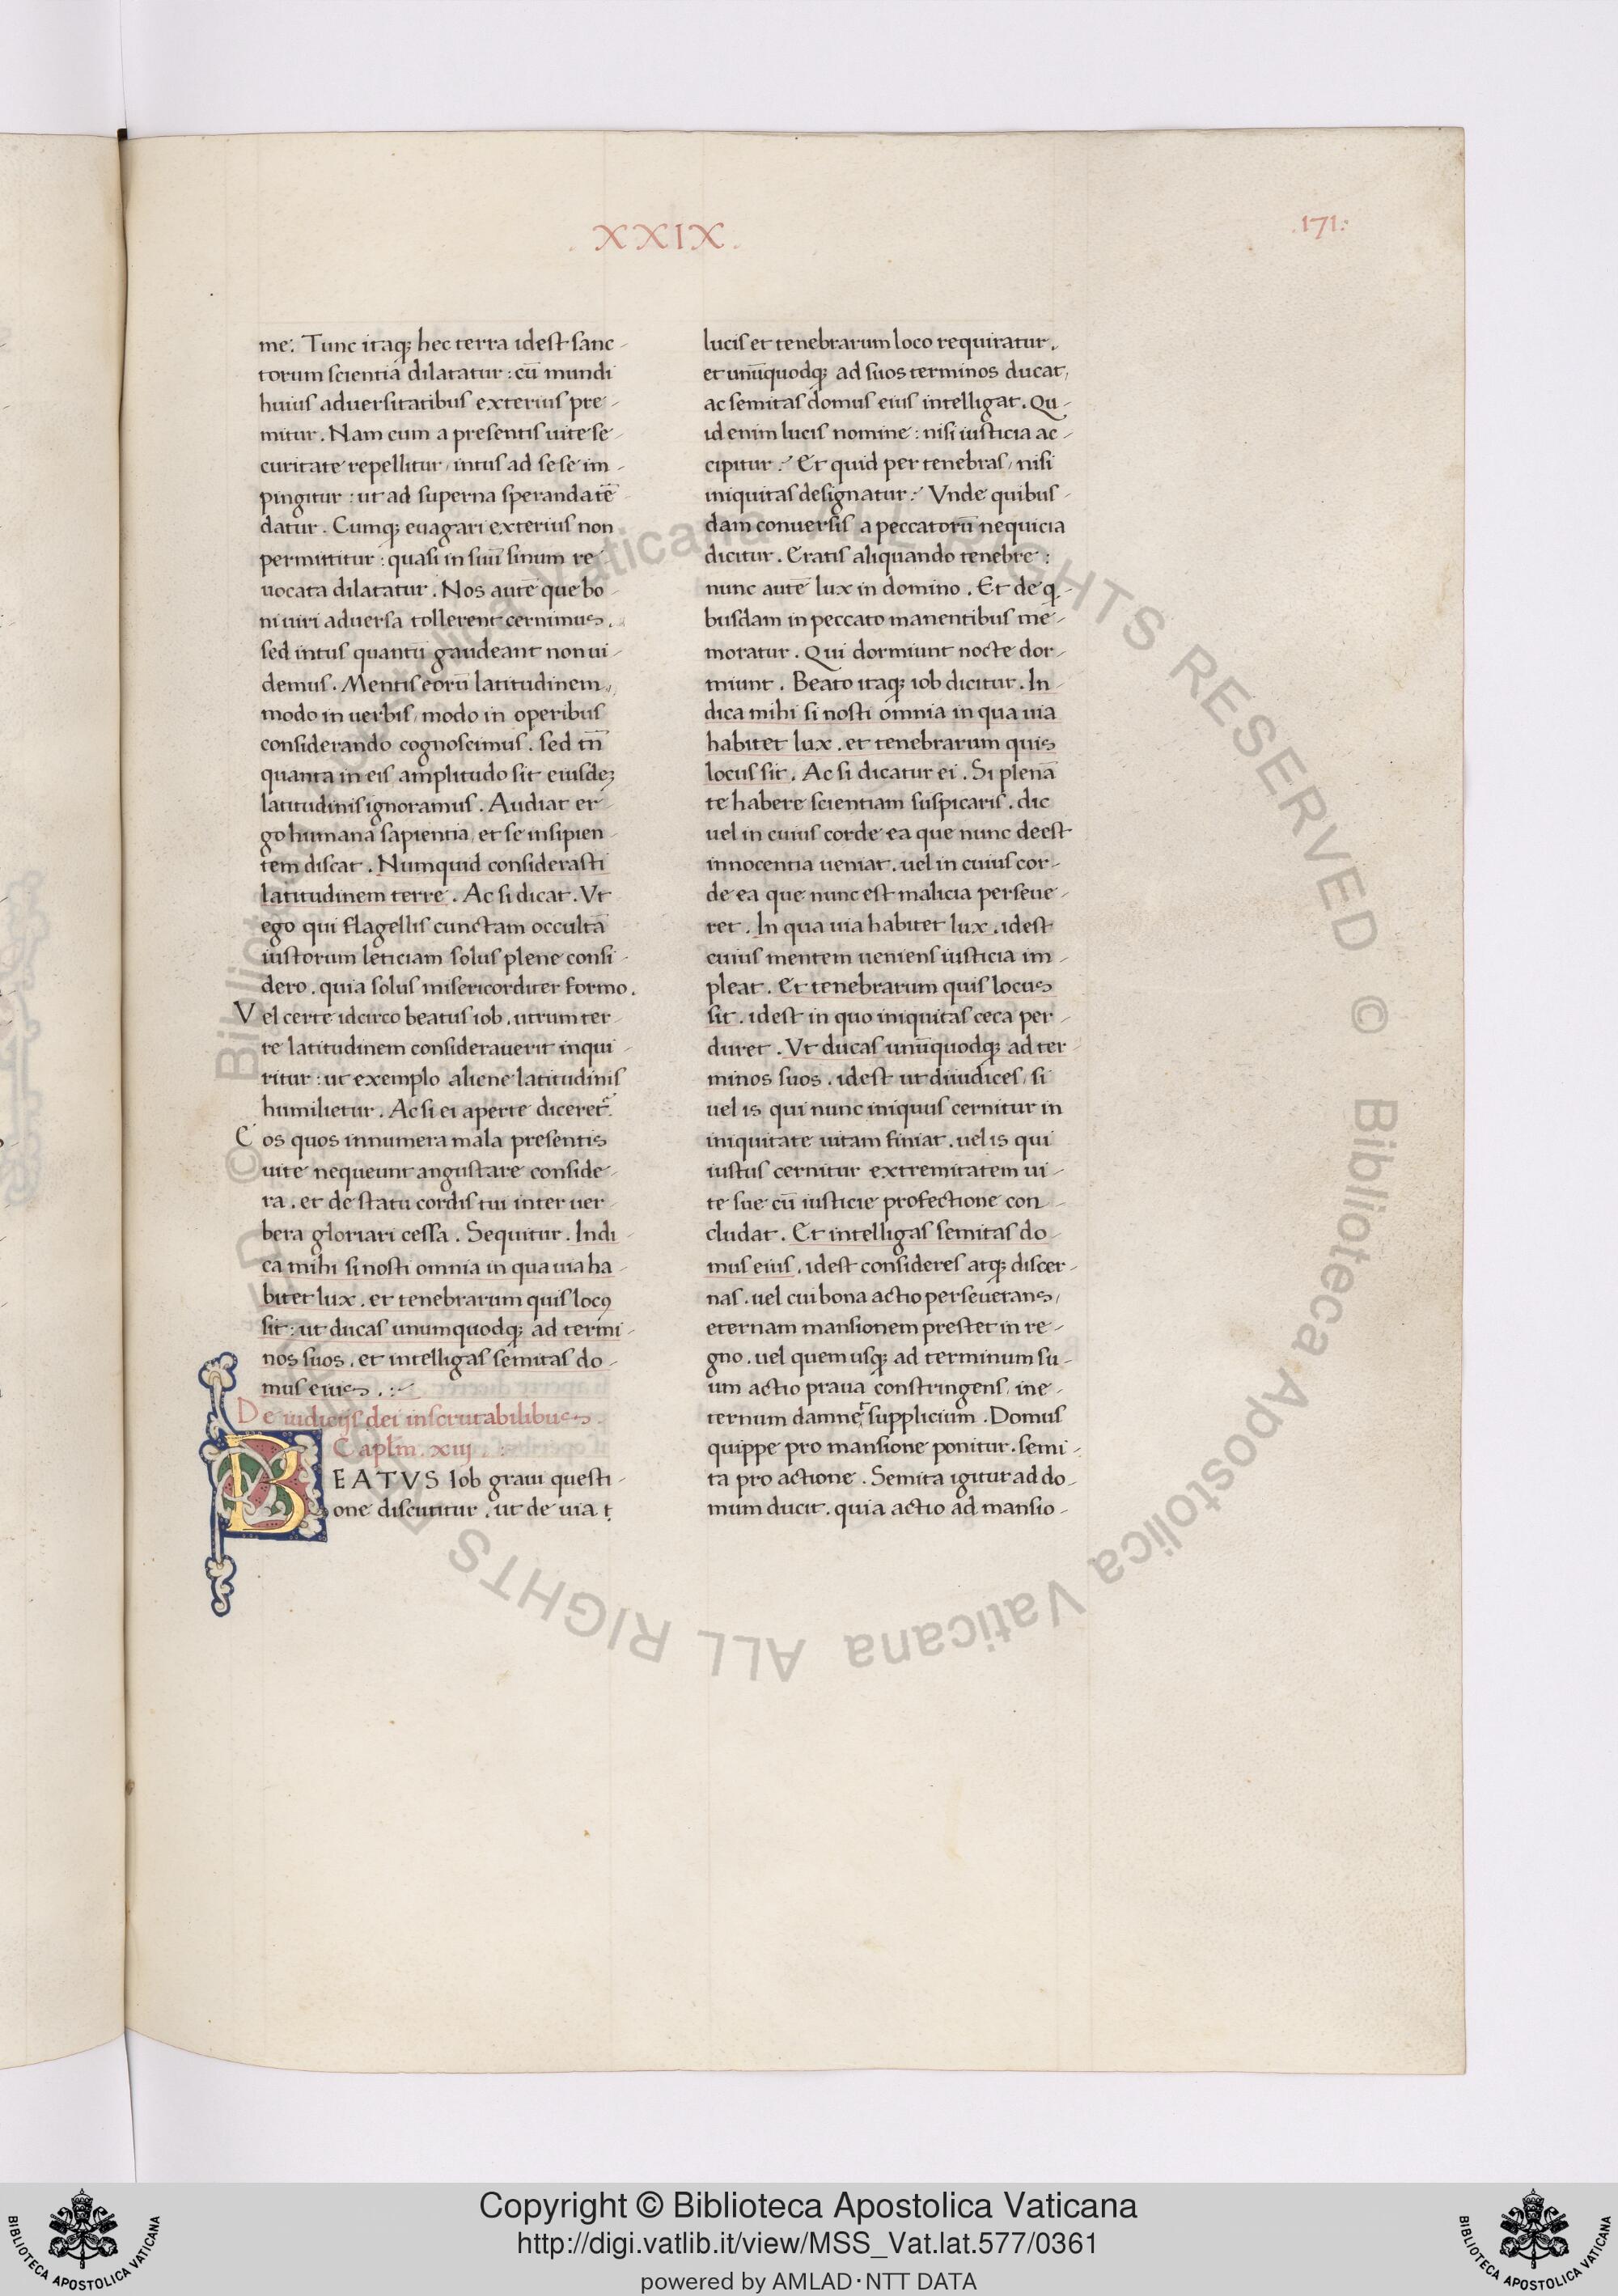 . XXIX .
.171.
me. Tunc itaqꝫ hec terra idest sanc-
torum scientia dilatatur : cū mundi
huius aduersitatibus exterius pre-
mitur . Nam cum a presentis uite se-
curitate repellitur / intus ad sese im-
pingitur : ut ad superna speranda tē-
datur . Cumqꝫ euagari exterius non
permittitur : quasi in suū sinum re-
uocata dilatatur . Nos autē que bo-
ni uiri aduersa tollerent cernimus .
sed intus quantū gaudeant non ui-
demus . Mentis eorū latitudinem /
modo in uerbis / modo in operibus
considerando cognoscimus . sed tn̄
quanta in eis amplitudo sit eiusdeꝫ
latitudinis ignoramus . Audiat er-
go humana sapientia / et se insipien-
tem discat . Numquid considerasti
latitudinem terre . Ac si dicat . Vt
ego qui flagellis cunctam occultā
iustorum leticiam solus plene consi-
dero . quia solus misericorditer formo .
Vel certe idcirco beatus iob . utrum ter-
re latitudinem considerauerit inqui-
ritur : ut exemplo aliene latitudinis
humilietur . Ac si ei aperte diceret᷑.
Eos quos innumera mala presentis
uite nequeunt angustare conside-
ra . et de statu cordis tui inter uer-
bera gloriari cessa . Sequitur . Indi-
ca mihi si nosti omnia in qua uia ha-
bitet lux . et tenebrarum quis locꝰ
sit : ut ducas unumquodqꝫ ad termi-
nos suos . et intelligas semitas do-
mus eius . :~
De iudicijs dei inscrutabilibus .
Caplm̄ . xiij . :
BEATVS Iob graui questi-
one discutitur . ut de uia t
lucis et tenebrarum loco requiratur .
et unūquodqꝫ ad suos terminos ducat /
ac semitas domus eius intelligat . Qu-
id enim lucis nomine : nisi iusticia ac-
cipitur ? Et quid per tenebras / nisi
iniquitas designatur ? Vnde quibus-
dam conuersis a peccatorū nequicia
dicitur . Eratis aliquando tenebre :
nunc autē lux in domino . Et de q-
busdam in peccato manentibus me-
moratur . Qui dormiunt nocte dor-
miunt . Beato itaqꝫ iob dicitur . In-
dica mihi si nosti omnia in qua uia
habitet lux . et tenebrarum quis
locus sit . Ac si dicatur ei . Si plenā
te habere scientiam suspicaris . dic
uel in cuius corde ea que nunc deest
innocentia ueniat . uel in cuius cor-
de ea que nunc est malicia perseue-
ret . In qua uia habitet lux . idest
cuius mentem ueniens iusticia im-
pleat . Et tenebrarum quis locus
sit . idest in quo iniquitas ceca per-
duret . Vt ducas unūquodqꝫ ad ter-
minos suos . idest ut diiudices / si
uel is qui nunc iniquus cernitur in
iniquitate uitam finiat . uel is qui
iustus cernitur extremitatem ui-
te sue cū iusticie profectione con-
cludat . Et intelligas semitas do-
mus eius . idest consideres atqꝫ discer-
nas . uel cui bona actio perseuerans /
eternam mansionem prestet in re-
gno . uel quem usqꝫ ad terminum su-
um actio praua constringens / in e-
ternum damnet supplicium . Domus
quippe pro mansione ponitur . semi-
ta pro actione . Semita igitur ad do-
mum ducit . quia actio ad mansio-
© Biblioteca Apostolica Vaticana ALL RIGHTS RESERVED © Biblioteca Apostolica Vaticana ALL RIGHTS RESERVED
Copyright © Biblioteca Apostolica Vaticana
http://digi.vatlib.it/view/MSS_Vat.lat.577/0361
powered by AMLAD·NTT DATA
BIBLIOTECA APOSTOLICA VATICANA
BIBLIOTECA APOSTOLICA VATICANA